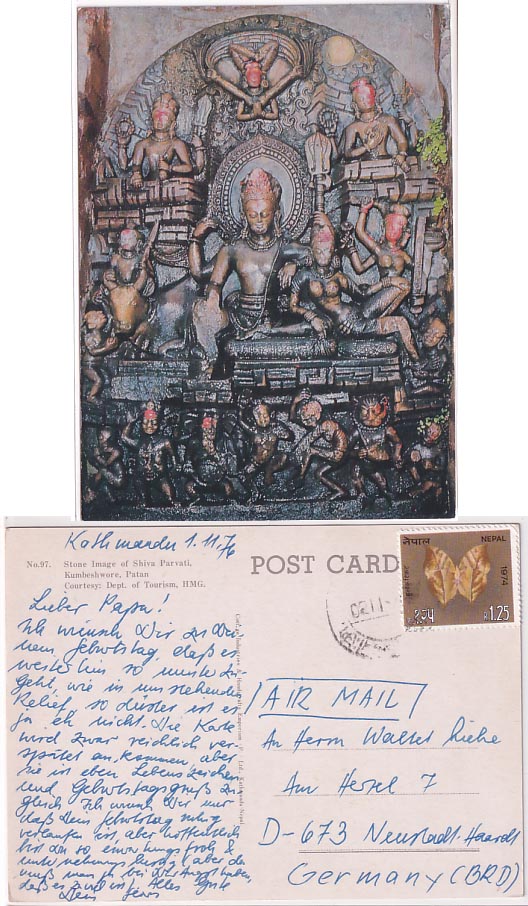 Kathmandu 1.11.76
No.97. Stone Image of Shiva Parvati,
Kumbeshwore, Patan
Courtesy: Dept. of Tourism, HMG.
POST CARD
नेपाल NEPAL
1974
१.२५ R 1.25
Lieber Papa!
Ich wünsch Dir zu Dei
nem Geburtstag, daß es
weiterhin so munter zu
geht, wie in umstehenden
Relief, so düster ist es
ja eh nicht. Die Karte
wird zwar reichlich ver-
spätet ankommen, aber
sie ist eben Lebenszeichen
und Geburtstagsgruß zu
gleich. Ich wünsch Dir nur
daß Dein Geburtstag ruhig
verlaufen ist, aber hoffentlich
bist du so, erwartungsfroh &
unternehmungslustig, aber da
muß man ja bei Dir Angst haben,
daß es zuviel ist. Alles Gute
Dein
AIR MAIL
An Herrn Walter
Am Hesel 7
D-673 Neustadt-Haardt
Germany (BRD)